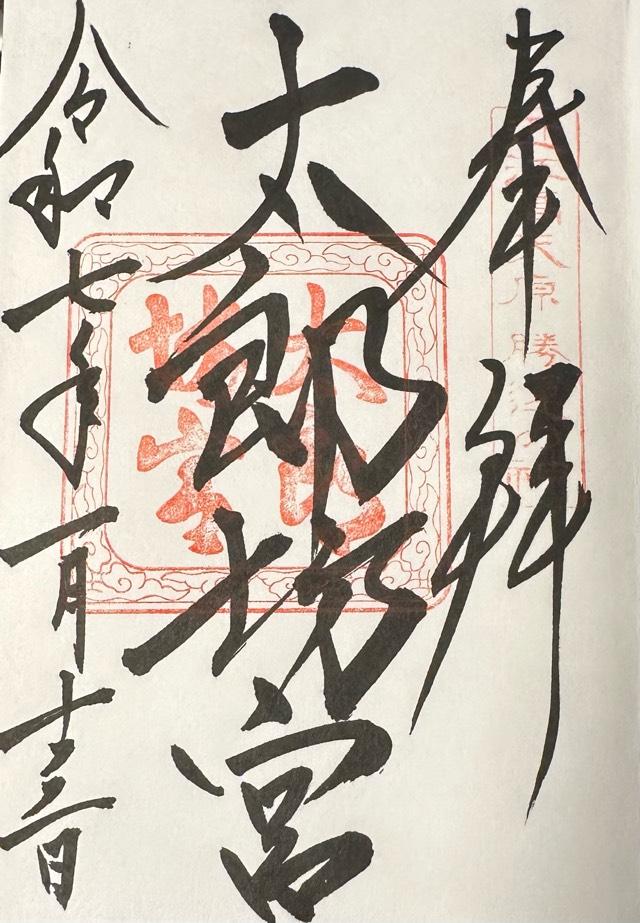 奉拝
太郎坊宮
令和七年一月十三日
太郎
坊宮